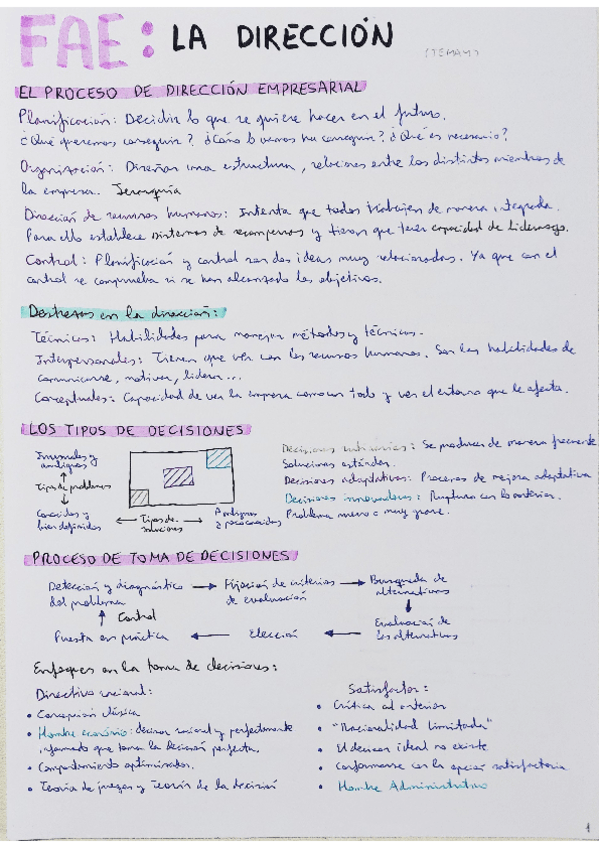 FAE: LA DIRECCIÓN
(TEMA 4)
EL PROCESO DE DIRECCIÓN EMPRESARIAL
Planificación: Decidir lo que se quiere hacer en el futuro.
¿Qué queremos conseguir? ¿Cómo lo vamos ha conseguir? ¿Qué es necesario?
Organización: Diseñar una estructura, relaciones entre los distintos miembros de
la empresa. Jerarquía
Dirección de recursos humanos: Intenta que todos trabajen de manera integrada.
Para ello establece sistemas de recompensas y tienen que tener capacidad de liderazgo.
Control: Planificación y control son dos ideas muy relacionadas. Ya que con el
control se comprueba si se han alcanzado los objetivos.
Destrezas en la dirección:
Técnicas: Habilidades para manejar métodos y técnicas.
Interpersonales: Tienen que ver con los recursos humanos. Son las habilidades de
comunicarse, motivar, liderar...
Conceptuales: Capacidad de ver la empresa como un todo y ver el entorno que le afecta.
LOS TIPOS DE DECISIONES
Inusuales y
ambiguos
Tipos de problemas
Conocidos y
bien definidos
Tipos de
soluciones
Ambiguas
y poco conocidas
Decisiones rutinarias: Se producen de manera frecuente
Soluciones estándar.
Decisiones adaptativas: Procesos de mejora adaptativa
Decisiones innovadoras: Ruptura con lo anterior.
Problema nuevo o muy grave.
PROCESO DE TOMA DE DECISIONES
Detección y diagnóstico
del problema
Fijación de criterios
de evaluación
Busqueda de
alternativas
Control
Puesta en práctica
Elección
Evaluación de
las alternativas
Enfoques en la toma de decisiones:
Directivo racional:
• Concepción clásica
• Hombre económico: decisor racional y perfectamente
informado que toman la decisión perfecta.
• Comportamiento optimizador.
• Teoría de juegos y Teoría de la decisión
Satisfactor:
• Crítica al anterior
• "Racionalidad limitada"
• El decisor ideal no existe
• Conformarse con la opción satisfactoria
• Hombre Administrativo
1